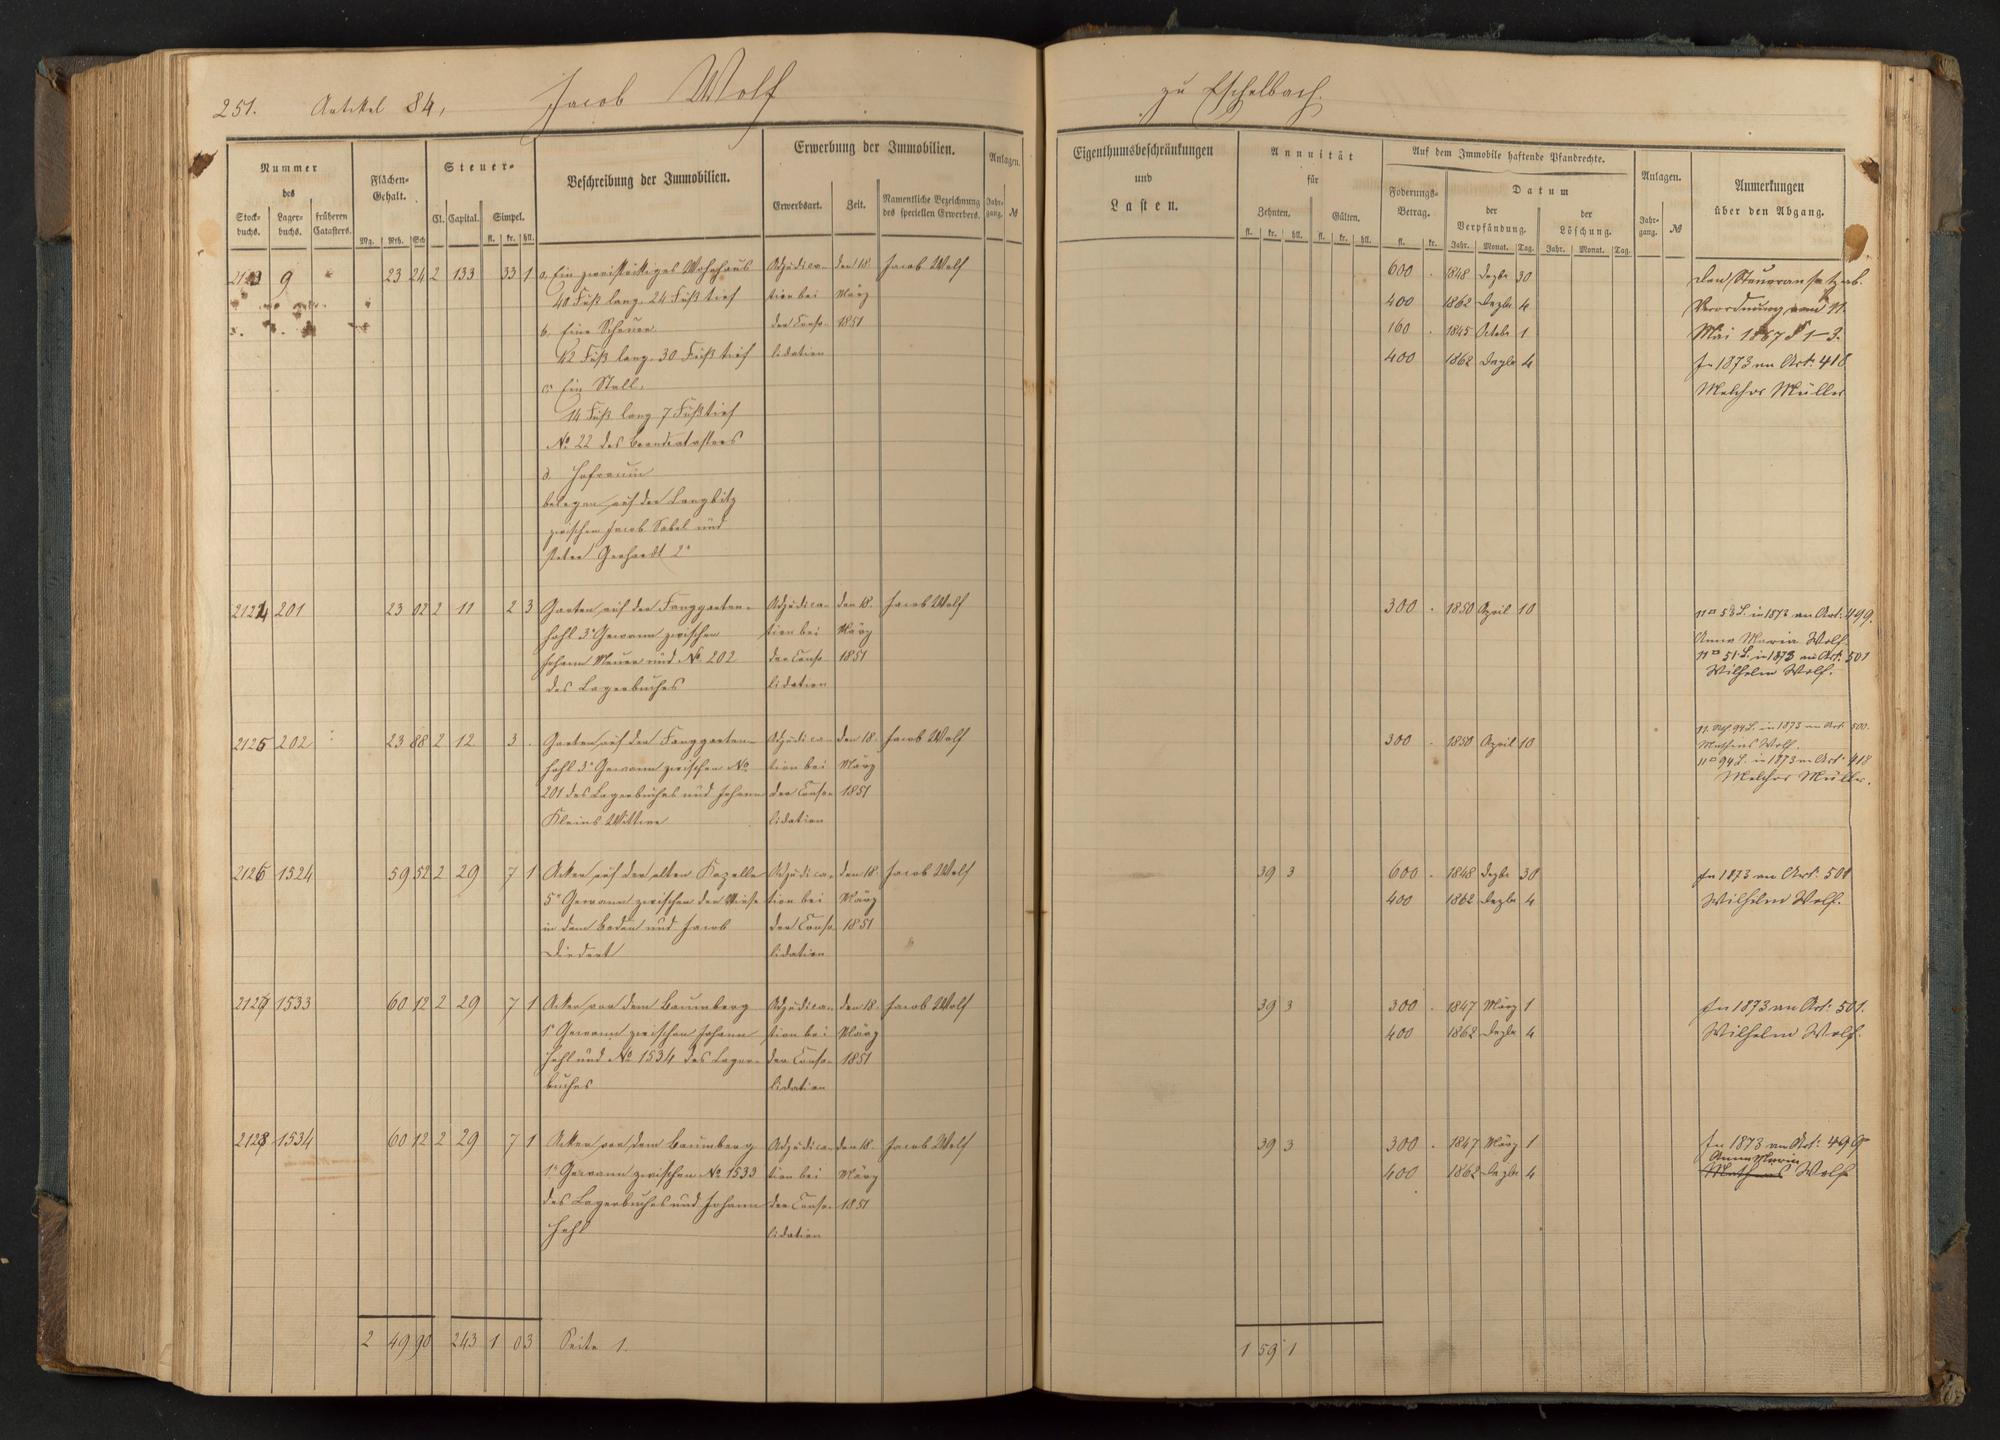 251. Artikel 84, Jacob Wolf zu Eschelbach.
Nummer des
Stockbuchs. Lagerbuchs. früheren Catasters.
Flächen-Gehalt.
Mg. Rth. Sch
Steuer-
Cl. Capital. Simpel.
fl. kr. hll.
Beschreibung der Immobilien.
Erwerbung der Immobilien.
Erwerbsart. Zeit. Namentliche Bezeichnung des speciellen Erwerbers.
Anlagen.
Jahrgang. №
Eigenthumsbeschränkungen
und
Lasten.
Annuität
für
Zehnten. Gülten.
fl. kr. hll. fl. kr. hll.
Auf dem Immobile haftende Pfandrechte.
Foderungs-Betrag.
fl. kr.
Datum
der Verpfändung. der Löschung.
Jahr. Monat. Tag. Jahr. Monat. Tag.
Anlagen.
Jahrgang. №
Anmerkungen
über den Abgang.
2123 9 23 24 2 133 33 1 a, Ein zweistöckiges Wohnhaus Adjudica- den 18. Jacob Wolf 600 . 1848 Dezbr 30
40 Fuß lang, 24 Fuß tief tion bei März 400 1862 Dezbr 4 Verordnung vom 11.
b, Eine Scheuer der Conso- 1851 160 . 1845 Octobr 1 Mai 1867 § 1-3.
42 Fuß lang. 30 Fuß tief lidation 400 1862 Dezbr 4 In 1873 an Art: 418
c, Ein Stall, Melchor Müller
14 Fuß lang 7 Fuß tief
№ 22 des Brandcatasters
d. Hofraum
belegen auf der Langbitz
zwischen Jacob Sabel und
Peter Gerhardt 2r
2124 201 23 02 2 11 2 3 Garten auf der Langgarten- Adjudica- den 18. Jacob Wolf 300 . 1850 April 10 11 □ 53 L. in 1873 an Art: 499.
hohl 3r Gewann zwischen tion bei März Anna Maria Wolf.
Johann Meurer und № 202 der Conso 1851 11 □ 51 L. in 1873 an Art: 501
des Lagerbuches lidation Wilhelm Wolf.
2125 202 23 88 2 12 3 . Garten auf der Langgarten- Adjudica- den 18. Jacob Wolf 300 . 1850 April 10 94 L. in 1873 an Art: 500.
hohl 3r Gewann zwischen № tion bei März Mathias Wolf.
201 des Lagerbuches und Johann der Conso- 1851 11 □ 94 L. in 1873 an Art: 418
Kleins Wittwe lidation Melchor Müller.
2126 1524 59 52 2 29 7 1 Acker auf der alten Kapelle Adjudica- den 18. Jacob Wolf 39 3 600 . 1848 Dezbr 30 In 1873 an Art: 501
5r Gewann zwischen der Wiese tion bei März 400 1862 Dezbr 4 Wilhelm Wolf.
in dem Boden und Jacob der Conso 1851
lidation
2127 1533 60 12 2 29 7 1 Acker vor dem Baumberg Adjudica- den 18. Jacob Wolf 39 3 300 . 1847 März 1 In 1873 an Art: 501.
1r Gewann zwischen Johann tion bei März 400 1862 Dezbr 4 Wilhelm Wolf.
Hehl und № 1534 des Lager- der Conso- 1851
buches lidation
2128 1534 60 12 2 29 7 1 Acker vor dem Baumberg Adjudica- den 18. Jacob Wolf 39 3 300 . 1847 März 1 In 1873 an Art: 499
1r Gewann zwischen № 1533 tion bei März 400 1862 Dezbr 4 Anna Maria Mathias Wolf
des Lagerbuches und Johann der Conso- 1851
Hehl lidation
2 49 90 243 1 03 Seite 1. 1 59 1